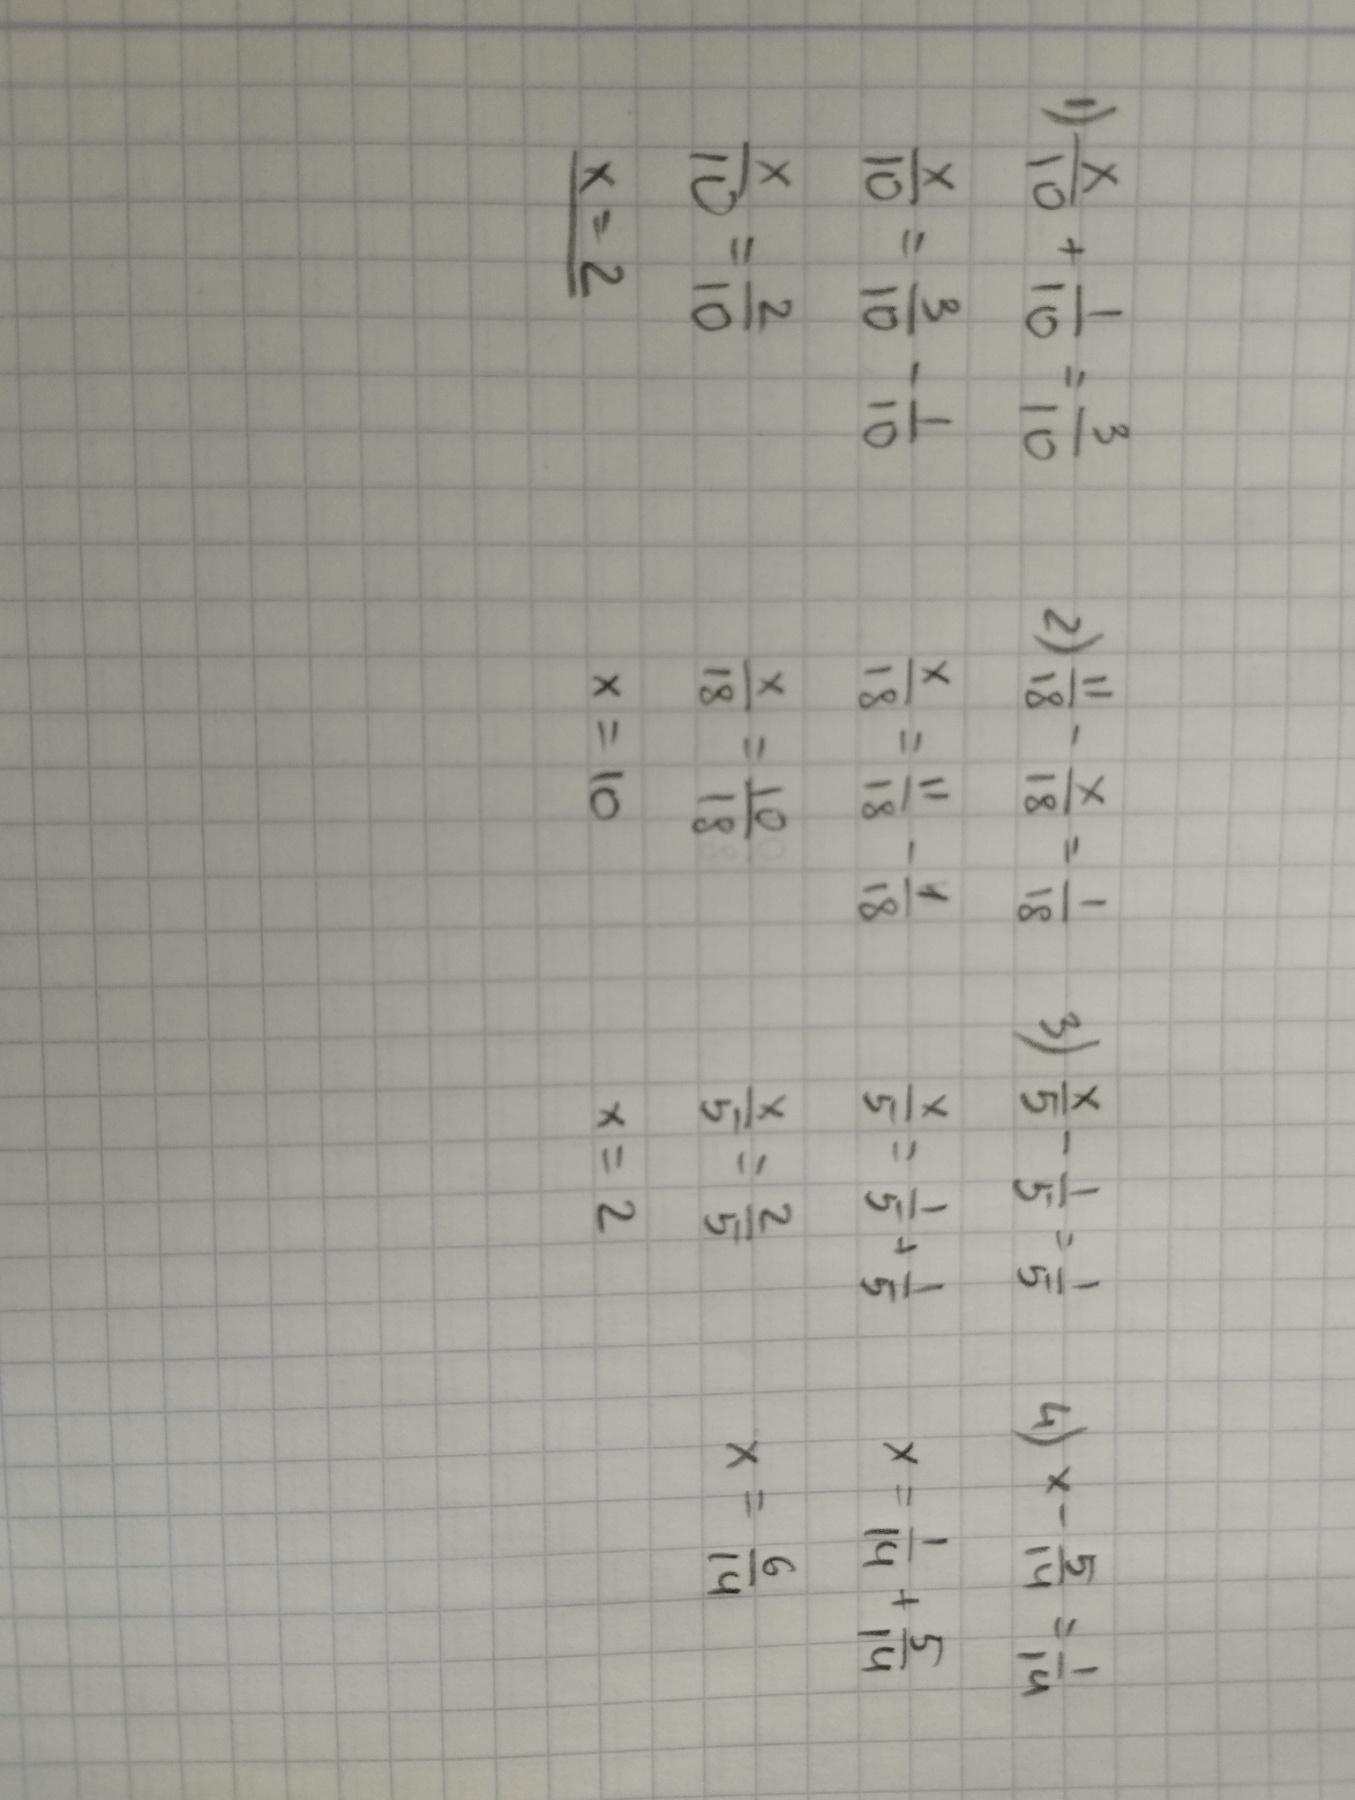 1) x/10 + 1/10 = 3/10
x/10 = 3/10 - 1/10
x/10 = 2/10
x = 2
2) 11/18 - x/18 = 1/18
x/18 = 11/18 - 1/18
x/18 = 10/18
x = 10
3) x/5 - 1/5 = 1/5
x/5 = 1/5 + 1/5
x/5 = 2/5
x = 2
4) x - 5/14 = 1/14
x = 1/14 + 5/14
x = 6/14